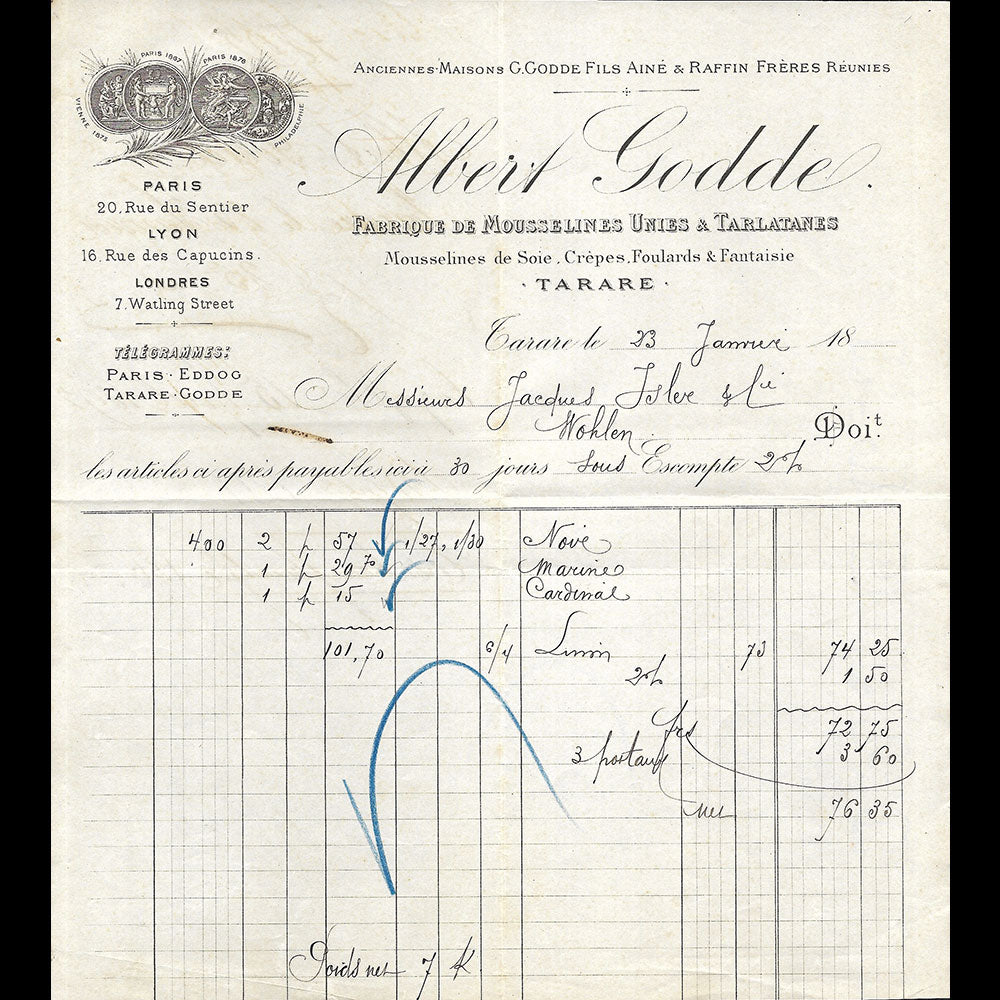 PARIS 1867 PARIS 1878
VIENNE 1873 PHILADELPHIE
ANCIENNES MAISONS G. GODDE FILS AINÉ & RAFFIN FRÈRES RÉUNIES
Albert Godde.
FABRIQUE DE MOUSSELINES UNIES & TARLATANES
Mousselines de Soie, Crèpes, Foulards & Fantaisie
· TARARE ·
PARIS
20, Rue du Sentier
LYON
16, Rue des Capucins.
LONDRES
7, Watling Street
TÉLÉGRAMMES:
PARIS · EDDOG
TARARE · GODDE
Tarare le 23 Janvier 18
Messieurs Jacques Isler & Cie
Wohlen
Doit.
les articles ci après payables ici à 30 jours sous Escompte 2%
400 2 p 57 1/27, 1/30 Noir
1 p 29 70 Marine
1 p 15 Cardinal
101,70 6/4 Linon 73 74 25
2% 1 50
72 75
3 frs 3 60
net 76 35
Poids net 7 K.